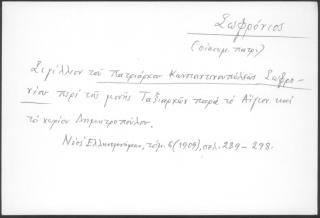 Σωφρόνιος
(οἰκουμ. πατρ.)
Σιγίλλιον τοῦ Πατριάρχου Κωνσταντινουπόλεως Σωφρο-
νίου περὶ τῆς μονῆς Ταξιαρχῶν παρὰ τὸ Αἴγιον καὶ
τὸ χωρίον Δημητρόπουλον.
Νέος Ἑλληνομνήμων, τόμ. 6 (1909), σελ. 289 - 298.